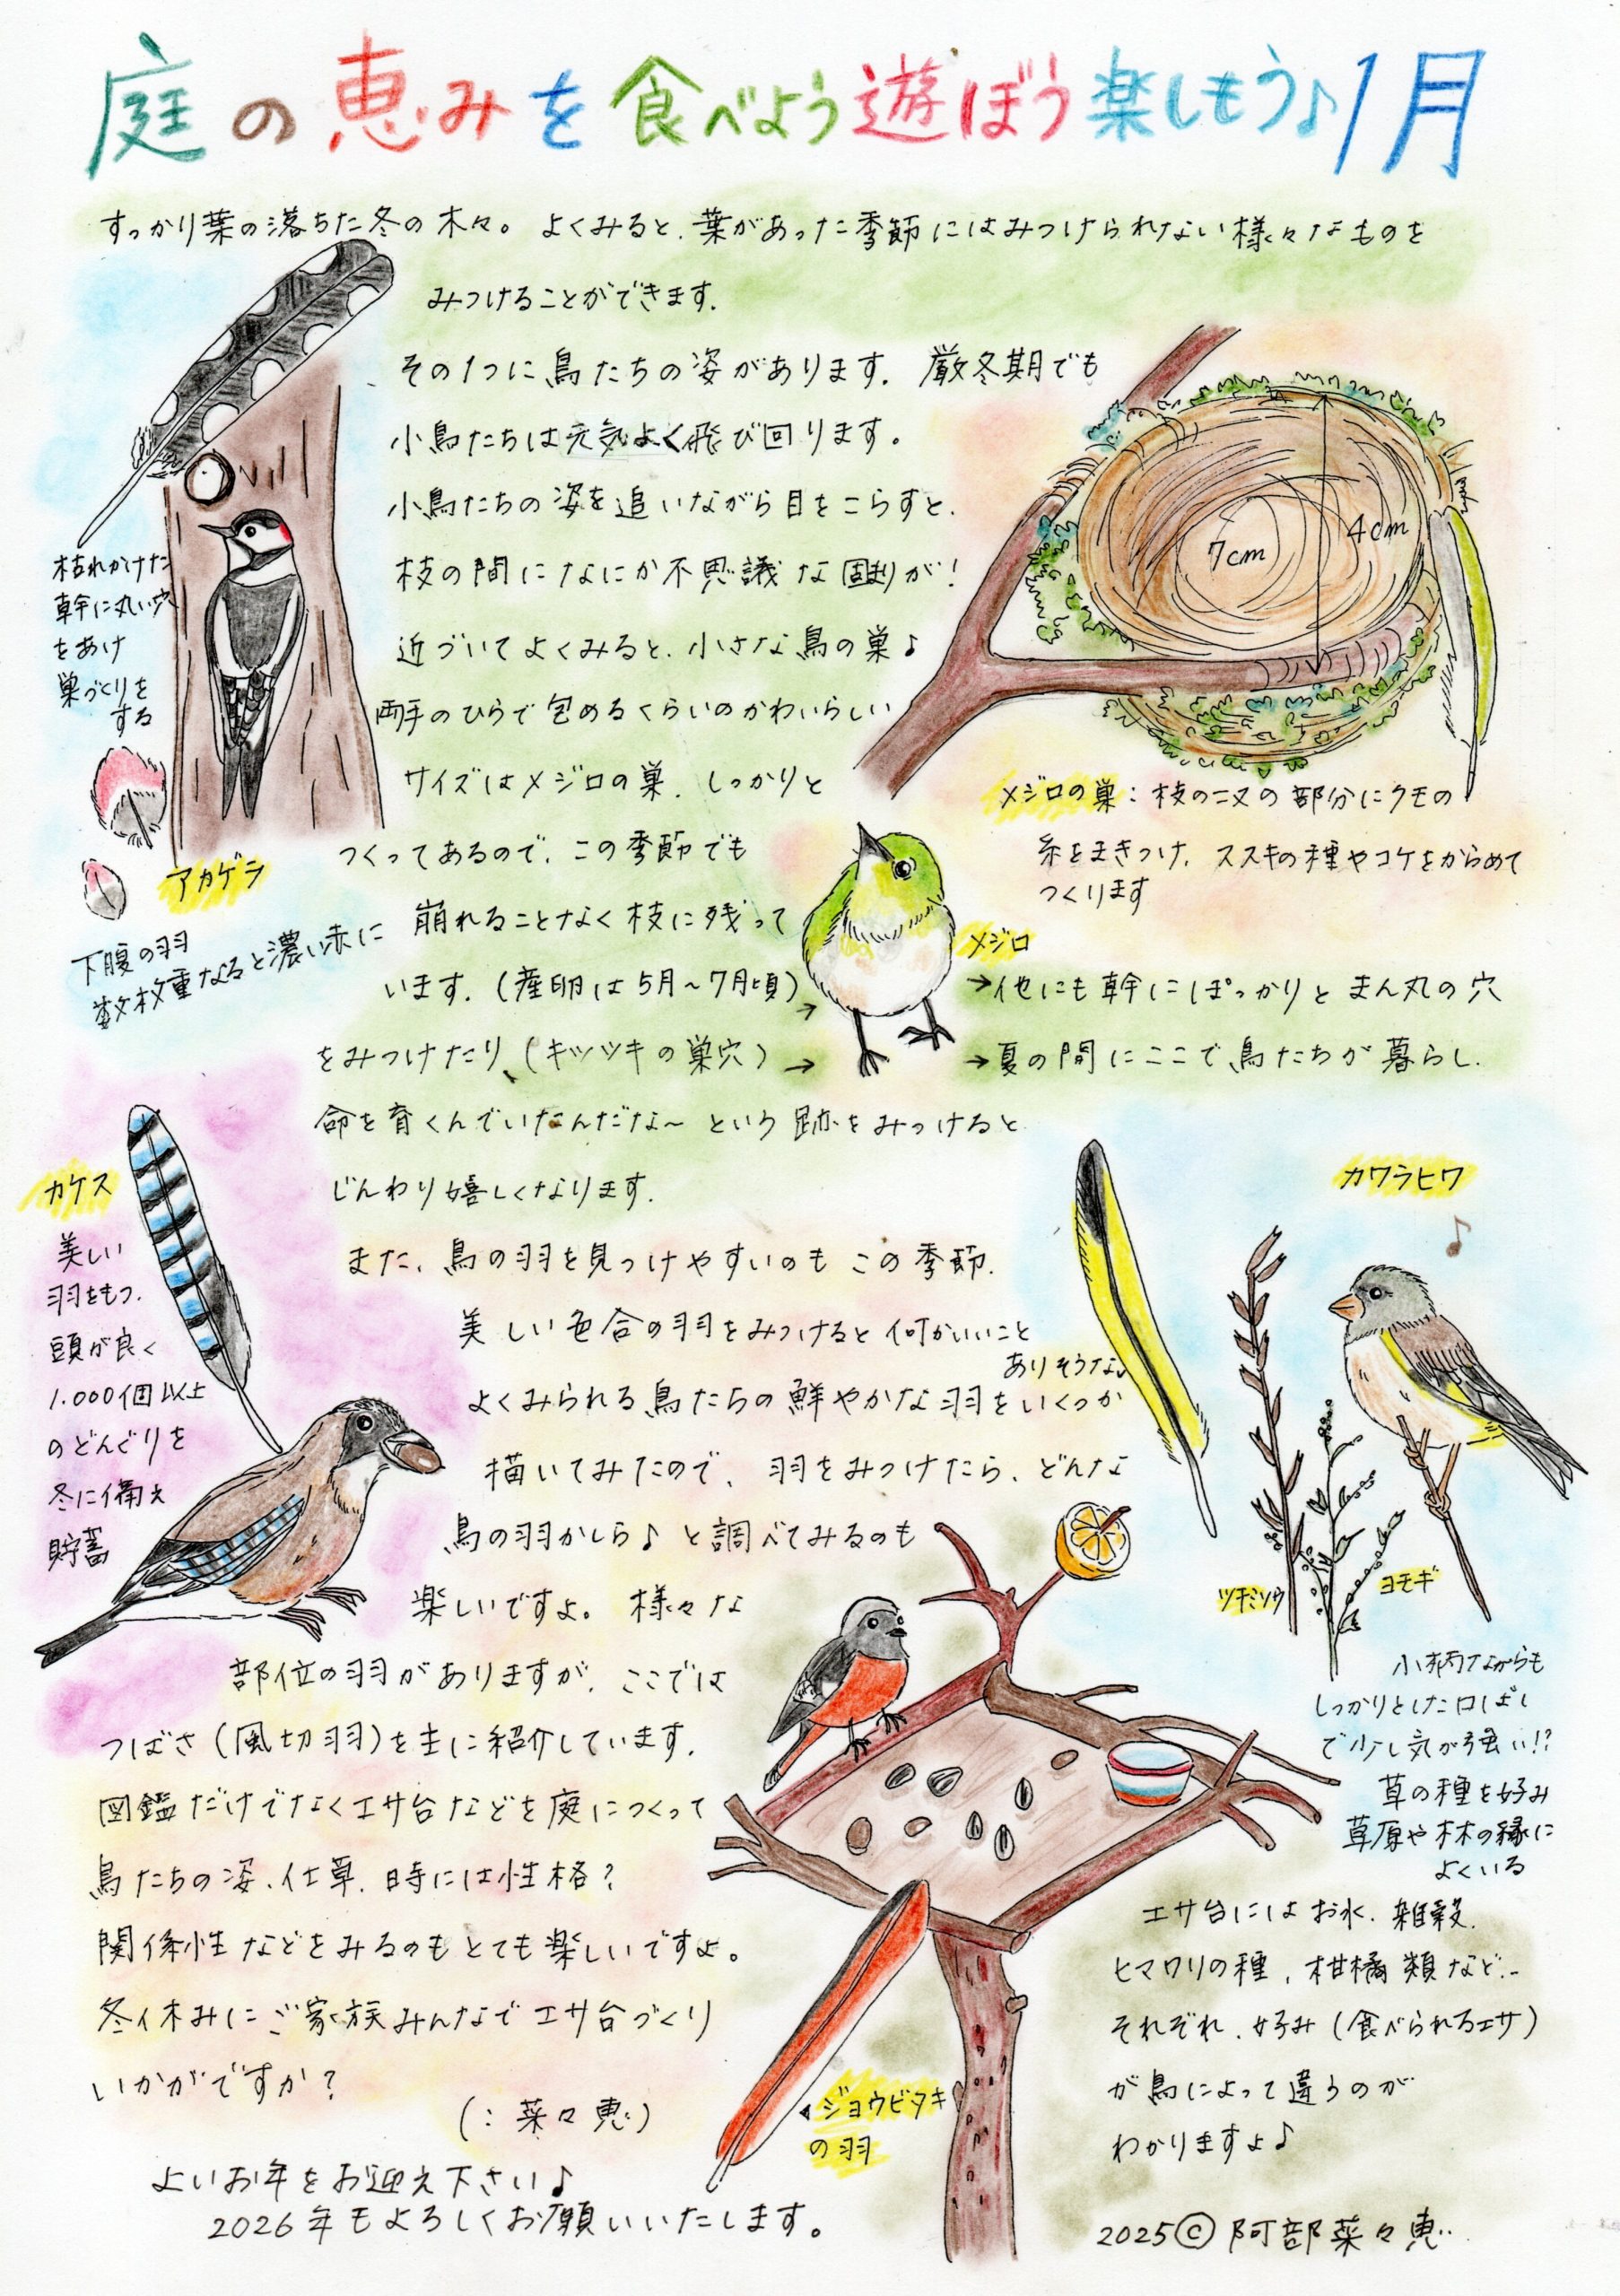 庭の恵みを食べよう遊ぼう楽しもう♪1月
すっかり葉の落ちた冬の木々。よくみると、葉があった季節にはみつけられない様々なものを
みつけることができます。
その1つに鳥たちの姿があります。厳冬期でも
小鳥たちは元気よく飛び回ります。
小鳥たちの姿を追いながら目をこらすと、
枝の間になにか不思議な固まりが!
近づいてよくみると、小さな鳥の巣♪
両手のひらで包めるくらいのかわいらしい
サイズはメジロの巣。しっかりと
つくってあるので、この季節でも
崩れることなく枝に残って
います。(産卵は5月~7月頃)→
→他にも幹にぽっかりとまん丸の穴
をみつけたり、(キツツキの巣穴)→
→夏の間にここで鳥たちが暮らし、
命を育くんでいたんだな~という跡をみつけると
じんわり嬉しくなります。
また、鳥の羽を見つけやすいのもこの季節。
美しい色合の羽をみつけると何かいいこと
ありそうな♪
よくみられる鳥たちの鮮やかな羽をいくつか
描いてみたので、羽をみつけたら、どんな
鳥の羽かしら♪と調べてみるのも
楽しいですよ。様々な
部位の羽がありますが、ここでは
つばさ(風切羽)を主に紹介しています。
図鑑だけでなくエサ台などを庭につくって
鳥たちの姿、仕草、時には性格?
関係性などをみるのもとても楽しいですよ。
冬休みにご家族みんなでエサ台づくり
いかがですか?
(:菜々恵)
よいお年をお迎え下さい♪
2026年もよろしくお願いいたします。
枯れかけた
幹に丸い穴
をあけ
巣づくりを
する
アカゲラ
下腹の羽
数枚重なると濃い赤に
7cm
4cm
メジロの巣:枝の二又の部分にクモの
糸をまきつけ、ススキの種やコケをからめて
つくります
メジロ
カケス
美しい
羽をもつ。
頭が良く
1.000個以上
のどんぐりを
冬に備え
貯蓄
カワラヒワ
♪
ヨモギ
小柄ながらも
しっかりとした口ばし
で少し気が強い!?
草の種を好み
草原や林の縁に
よくいる
エサ台にはお水、雑穀、
ヒマワリの種、柑橘類など…
それぞれ、好み(食べられるエサ)
が鳥によって違うのが
わかりますよ♪
◀ジョウビタキ
の羽
2025©阿部菜々恵